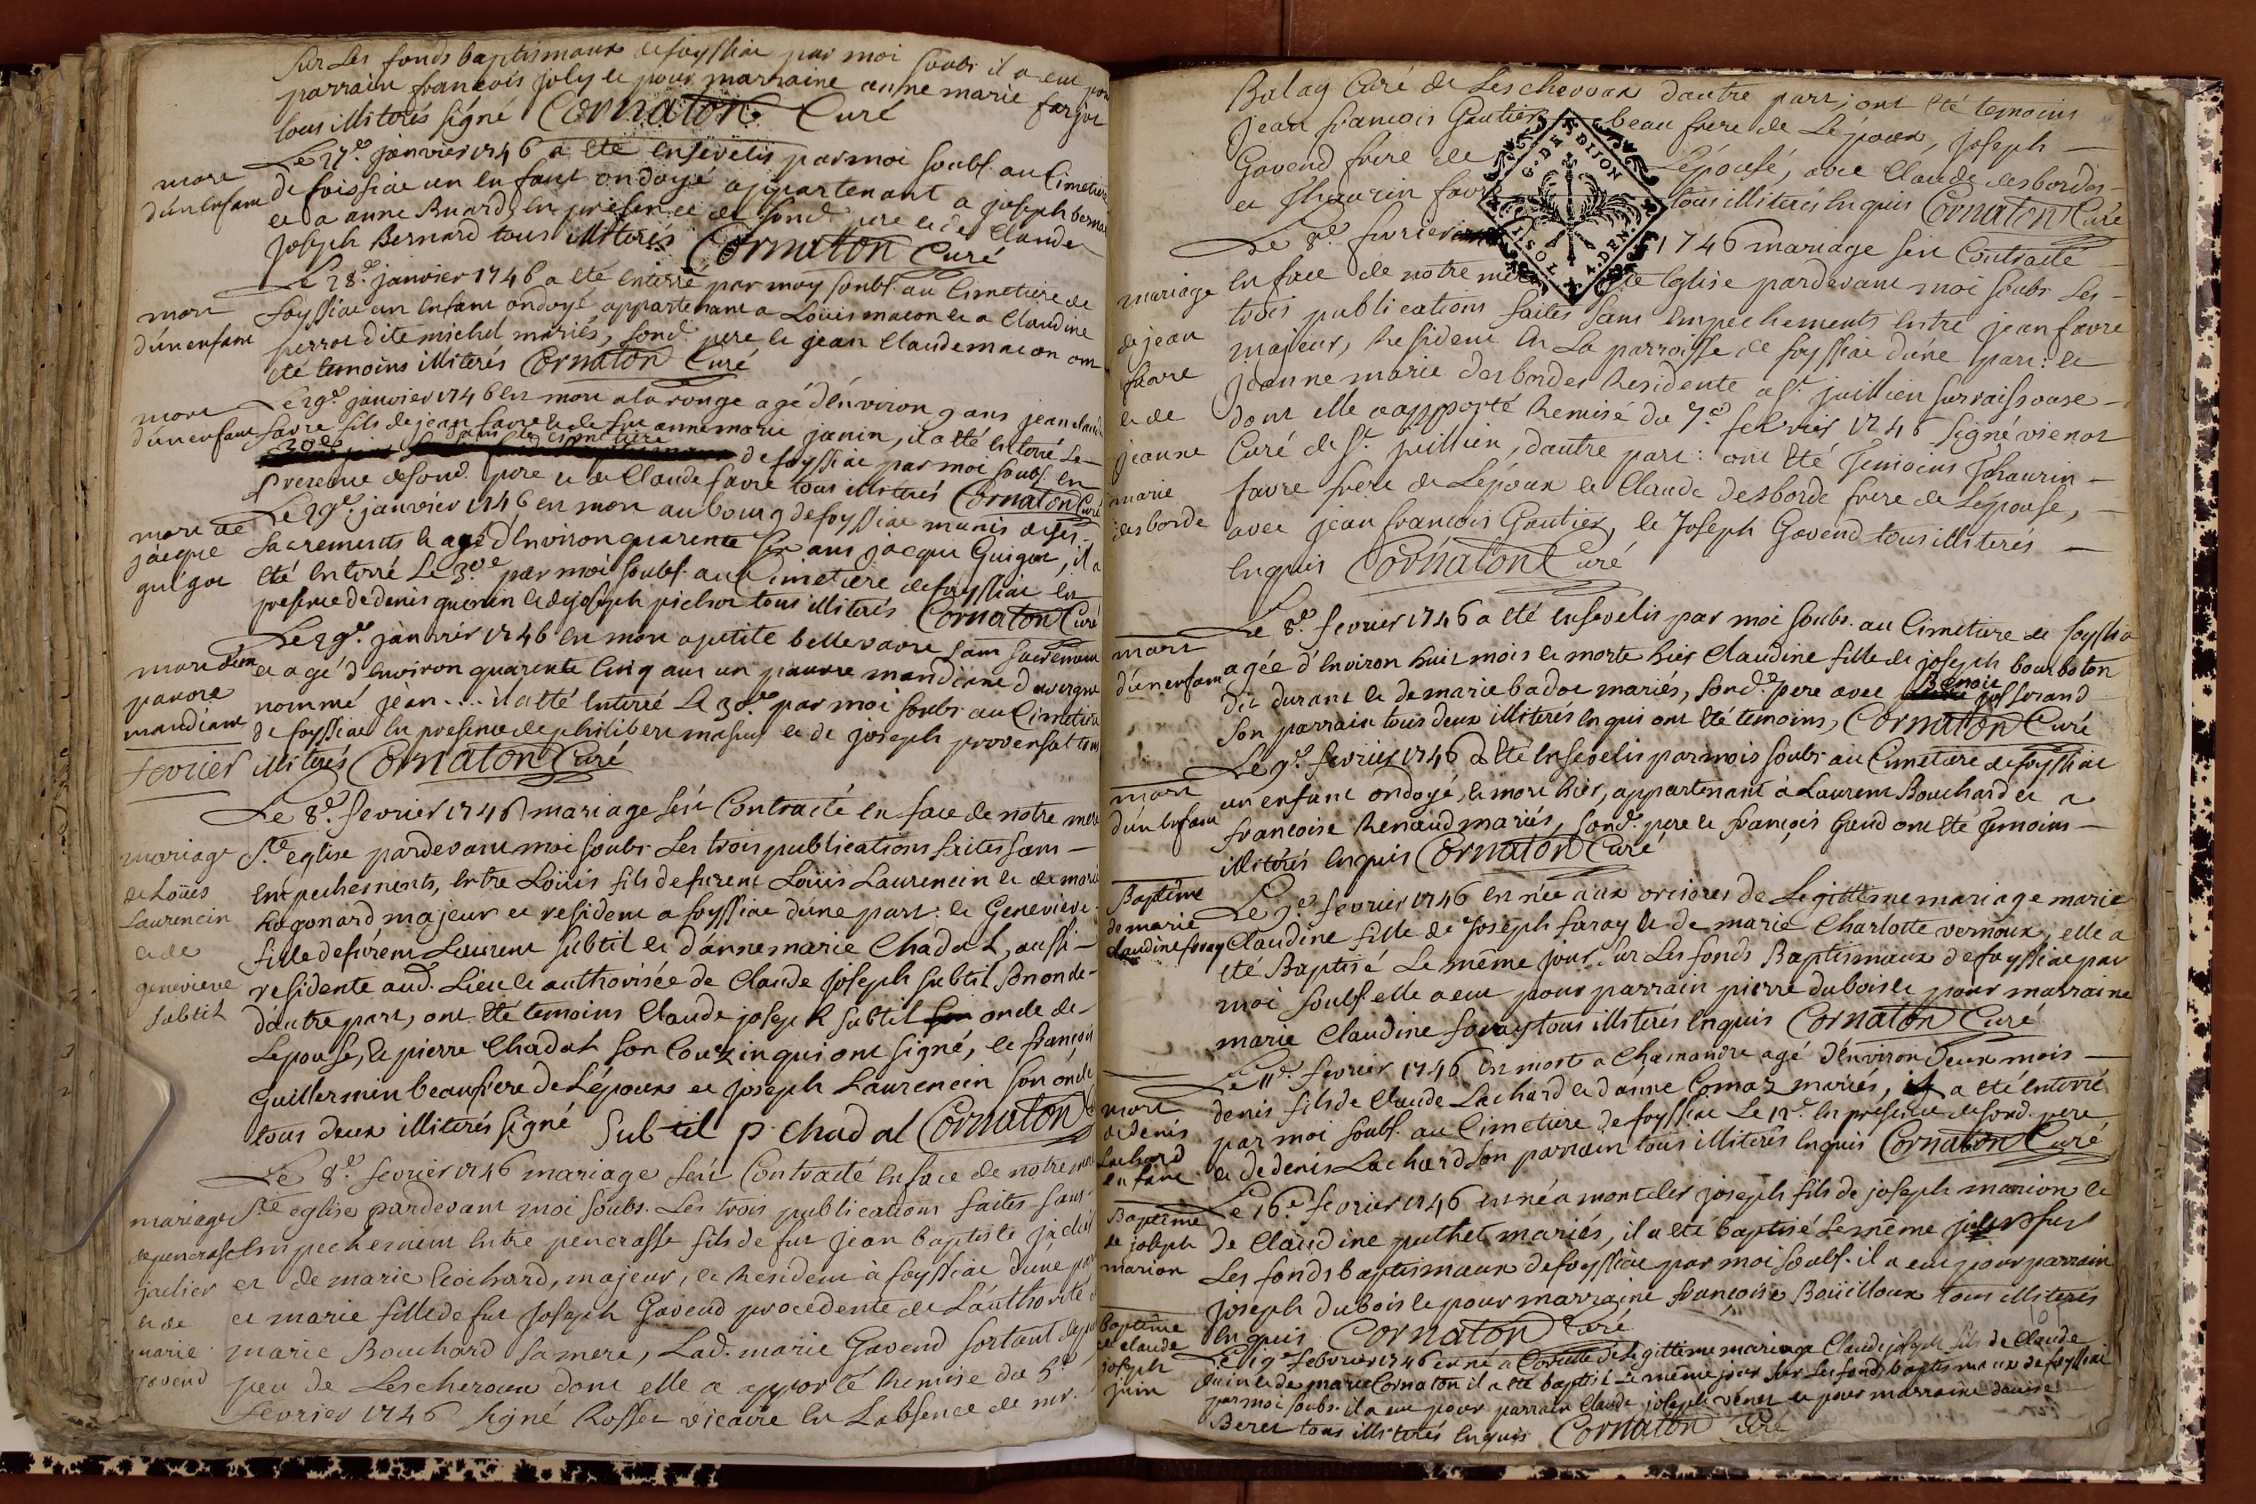 sur Les fonds baptismaux de foyssiac par moi soubs. il a eu pour
parrain francois joly et pour marraine anne marie fargot
tous illiterés signé Cornaton Curé
mort
d'un enfant
Le 27e. janvier 1746 a eté ensevelis par moi soubs. au Cimetiere
de foissiac un enfant ondoyé appartenant a joseph bernard
et a anne Ruard, en presence de sond. pere et de Claude
Joseph Bernard tous illiterés Cornaton Curé
mort
d'un enfant
Le 28e. janvier 1746 a eté enterré par moy soubs. au Cimetiere de
foyssiac un enfant ondoyé appartenant a Louis macon et a Claudine
perrot dite michel mariés, sond. pere et jean Claude macon ont
eté temoins illiterés Cornaton Curé
mort
d'un enfant
Le 29e. janvier 1746 est mort a la rouge agé d'environ 9 ans jean claude
favre fils de jean favre et de fut anne marie janin, il a eté enterré Le
30e dans le cimetiere de foyssiac par moi soubs. en
presence de sond. pere et de Claude favre tous illiterés Cornaton Curé
mort de
jacque
guigot
Le 29e. janvier 1746 est mort au bourg de foyssiac munis de ses
sacrements et agé d'environ quarente six ans jacque Guigot, il a
eté enterré Le 30e. par moi soubs. au Cimetiere de foyssiac en
presence de denis et de joseph tous illiterés Cornaton Curé
mort d'un
pauvre
mandiant
Le 29e. janvier 1746 est mort a petite bellevavre sans sacrement
et agé d'environ quarente cinq ans un pauvre mandiant d'auvergne
nommé jean .... il a eté enterré Le 30e. par moi soubs. au Cimetiere
de foyssiac en presence de philibert et de joseph provensal tous
illiterés Cornaton Curé
fevrier
mariage
de Loüis
Laurencin
et de
genevieve
subtil
Le 8e. fevrier 1746 mariage fut Contracté en face de notre mere
Ste. eglise pardevant moi soubs. Les trois publications faites sans
empechements, entre Loüis fils de furent Loüis Laurencin et de marie
hugonard majeur et resident a foyssiac d'une part: et Genevieve
fille de furent Laurent subtil et d'anne marie Chadal, aussi
residente aud. Lieu et authorisée de Claude Joseph subtil son oncle
d'autre part, ont eté temoins Claude joseph subtil oncle de
L'epouse, et pierre Chadal son Couzin qui ont signé, et francois
Guillermin beaufrere de L'époux et joseph Laurencin son oncle
tous deux illiterés signé Subtil p. chadal Cornaton
mariage
de pencrasse
jaclier
et de
marie
gavend
Le 8e. fevrier 1746 mariage fut Contracté en face de notre mere
Ste eglise pardevant moi soubs. Les trois publications faites sans
empechement entre pencrasse fils de fut jean baptiste jaclier
et de marie Cochard, majeur, et resident à foyssiac d'une part
et marie fille de fut Joseph Gavend procedente de L'authorité de
marie Bouchard sa mere, Lad. marie Gavend sortant depuis
peu de Lescheroux dont elle a apporté Remise du 5e
fevrier 1746 signé Rosset vicaire en L'absence de mr.
Balay Curé de Lescheroux d'autre part; ont eté temoins
jean francois Gautier beau frere de L'époux, Joseph
Gavend frere de L'épouse, avec Claude desbordes
et Thaurin favre tous illiterés enquis Cornaton Curé
G. DE DIJON
mariage
de jean
favre
et de
jeanne
marie
desborde
Le 8e. fevrier 1746 mariage fut Contracté
en face de notre mere Ste Eglise pardevant moi soubs. Les
trois publications faites sans empechements entre jean favre
majeur, Resident en La parroisse de foyssiac d'une part: et
Jeanne marie desbordes Residente a St. jullien sur raissouse
dont elle a apporté Remise du 7e. fevrier 1746 signé vienot
Curé de St. jullien, d'autre part: ont eté Temoins Thaurin
favre frere de L'époux et Claude desborde frere de L'épouse,
avec jean francois Gautier, et Joseph Gavend tous illiterés
enquis Cornaton Curé
mort
d'un enfant
Le 8e. fevrier 1746 a eté ensevelis par moi soubs. au Cimetiere de foyssia
agée d'environ huit mois et morte hier Claudine fille de joseph bourboton
dit durant et de marie badoc mariés, sond. pere avec Benoit josserand
son parrain tous deux illiterés enqui ont eté temoins, Cornaton Curé
mort
d'un enfant
Le 9e. fevrier 1746 a eté ensevelis par mois soubs. au Cimetiere de foyssiac
un enfant ondoyé, et mort hier, appartenant à Laurent Bouchard et a
francoise Renaud mariés, sond. pere et françois Gaud ont eté Temoins
illiterés enquis Cornaton Curé
Baptême
de marie
claudine foray
Le 9e. fevrier 1746 est née aux orcieres de Legitteme mariage marie
Claudine fille de Joseph foray et de marie Charlotte vernoux, elle a
eté Baptisé Le même jour sur Les fonds Baptismaux de foyssiac par
moi soubs. elle a eut pour parrain pierre dubois et pour marraine
marie Claudine foray tous illiterés enquis Cornaton Curé
mort
de denis
Lachard
enfant
Le 11e. fevrier 1746 est mort a Chamandre agé d'environ deux mois
denis fils de Claude Lachard et d'anne Comaz mariés, il a eté enterré
par moi soubs. au Cimetiere de foyssiac Le 12e. en presence de sond. pere
et de denis Lachard son parrain tous illiterés enquis Cornaton Curé
Baptême
de joseph
marion
Le 16e fevrier 1746 est né a montelier joseph fils de joseph marion et
de Claudine puthet mariés, il a eté baptisé Le même jour sur
Les fonds baptismaux de foyssiac par moi soubs. il a eut pour parrain
joseph dubois et pour marraine francoise Boüilloux tous illiterés
enquis Cornaton Curé
baptême
de claude
joseph
juin
Le 19e febvrier 1746 est né a de Legitteme mariage Claude joseph fils de Claude
juin et de marie Cornaton il a eté baptisé Le même jour sur Les fonds baptismaux de foyssiac
par moi soubs. il a eut pour parrain Claude joseph venet et pour marraine
Beret tous illiterés enquis Cornaton Curé